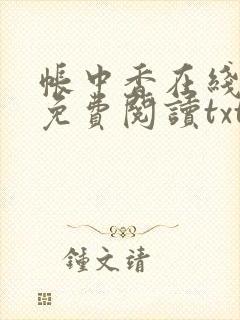 帳中香在綫
免費閱讀txt
鍾文靖